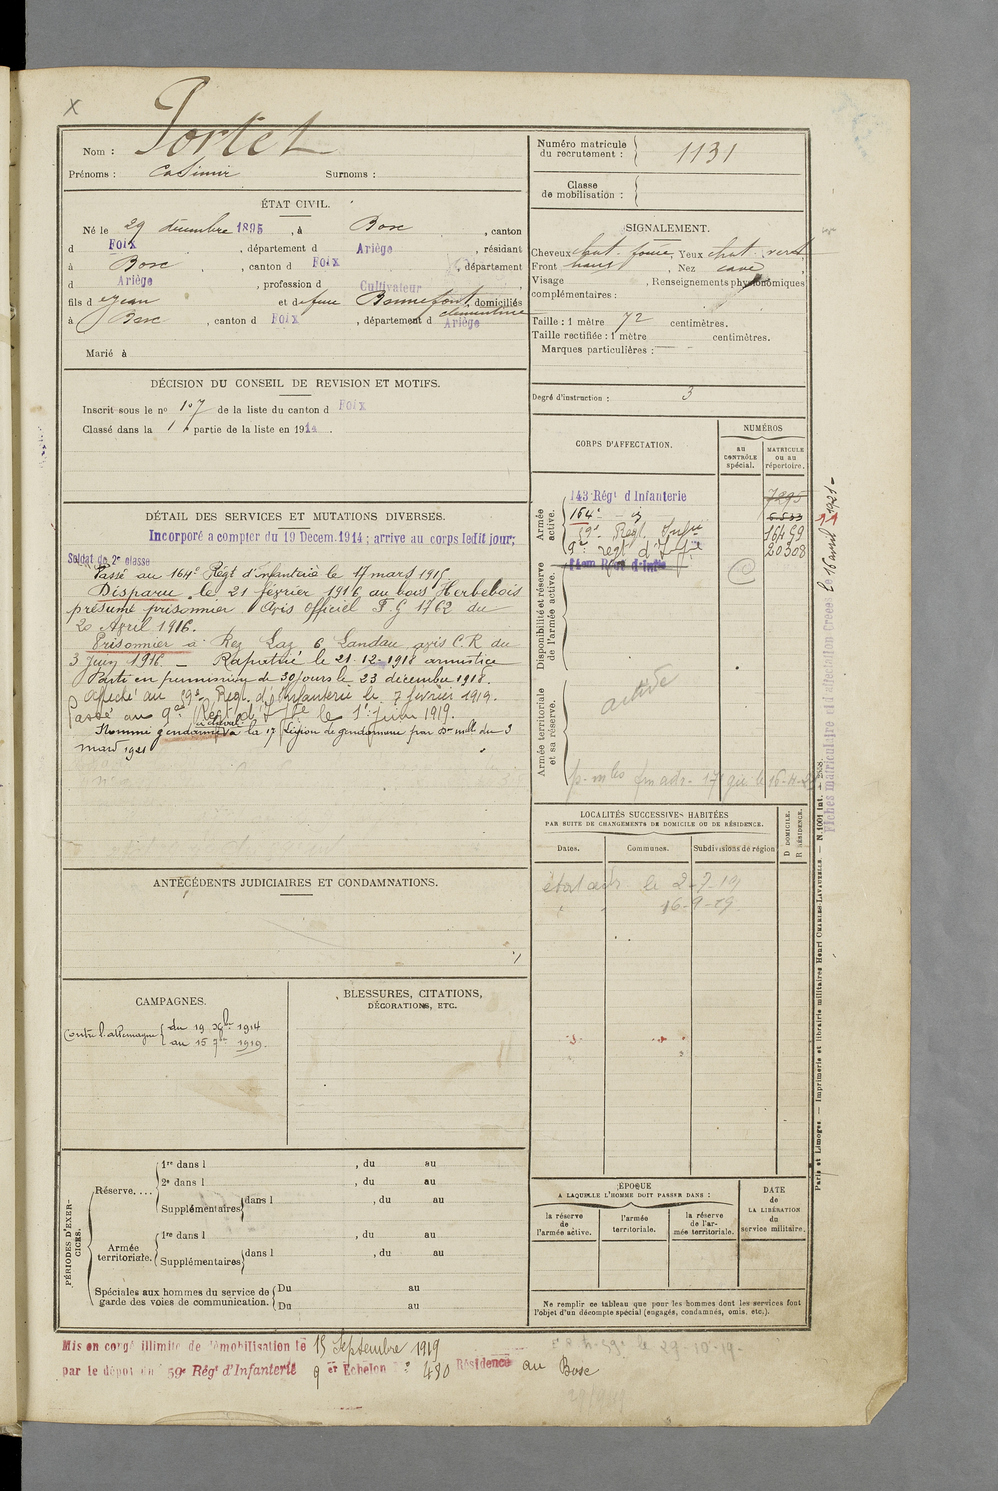 X
Nom : Portet
Prénoms : Casimir Surnoms :
Numéro matricule du recrutement : 1131
Classe de mobilisation :
ÉTAT CIVIL.
Né le 29 décembre 1895, à Bosc, canton
d Foix, département d Ariège, résidant
à Bosc, canton d Foix, département
d Ariège, profession d Cultivateur
fils d e Jean et de feue Bonnefont clémentine, domiciliés
à Bosc, canton d Foix, département d Ariège
Marié à
SIGNALEMENT.
Cheveux chat. foncé, Yeux chat. verd.
Front haut, Nez cave
Visage , Renseignements physionomiques
complémentaires :
Taille : 1 mètre 72 centimètres.
Taille rectifiée : 1 mètre centimètres.
Marques particulières :
Degré d'instruction : 3
DÉCISION DU CONSEIL DE REVISION ET MOTIFS.
Inscrit sous le nº 107 de la liste du canton d Foix
Classé dans la 1 partie de la liste en 1914.
DÉTAIL DES SERVICES ET MUTATIONS DIVERSES.
Incorporé a compter du 19 Décem. 1914 ; arrive au corps ledit jour;
Soldat de 2e classe
Passé au 164e Régt d'infanterie le 17 mars 1915
Disparu le 21 février 1916 au bois Herbebois
présumé prisonnier. Avis officiel F.G 1762 du
20 Avril 1916.
Prisonnier à Rez Laz 6 Landau avis C.R du
3 Juin 1916. — Rapatrié le 21-12-1918 armistice
Parti en permission de 30 jours le 23 décembre 1918.
Affecté au 59e Régt d'Infanterie le 7 février 1919.
Passé au 9e Régt d'Iffie le 1er Juin 1919.
Nommé gendarme à cheval à la 17 Légion de gendarmerie par Don mlle du 3
mars 1921
CORPS D'AFFECTATION.
NUMÉROS
au CONTRÔLE spécial.
MATRICULE ou au répertoire.
Armée active.
143 Régt d Infanterie 7295
164e - id 6533
59e Régt Infie 16459
9e régt d'Iffie 20308
Disponibilité et réserve de l'armée active.
Armée territoriale et sa réserve.
LOCALITÉS SUCCESSIVES HABITÉES
PAR SUITE DE CHANGEMENTS DE DOMICILE OU DE RÉSIDENCE.
Dates. Communes. Subdivisions de région
D DOMICILE.
R RÉSIDENCE.
le 2-7-19
16-9-19
ANTÉCÉDENTS JUDICIAIRES ET CONDAMNATIONS.
CAMPAGNES.
Contre l'allemagne du 19 Xbre 1914
au 15 7bre 1919.
BLESSURES, CITATIONS,
DÉCORATIONS, ETC.
PÉRIODES D'EXERCICES.
Réserve....
1re dans l , du au
2e dans l , du au
Supplémentaires dans l , du au
Armée territoriale.
1re dans l , du au
Supplémentaires dans l , du au
Spéciales aux hommes du service de garde des voies de communication.
Du au
Du au
ÉPOQUE
A LAQUELLE L'HOMME DOIT PASSER DANS :
la réserve de l'armée active.
l'armée territoriale.
la réserve de l'armée territoriale.
DATE de LA LIBÉRATION du service militaire.
Ne remplir ce tableau que pour les hommes dont les services font
l'objet d'un décompte spécial (engagés, condamnés, omis, etc.).
Paris et Limoges. — Imprimerie et librairie militaires Henri CHARLES-LAVAUZELLE. — N. 1001 int. — 2558.
Fiches matriculaire et d'affectation Créées le
Mis en congé illimité de démobilisation le 15 Septembre 1919
par le dépot du 59e Régt d'Infanterie 9e Echelon nº 480 Résidence au Bosc